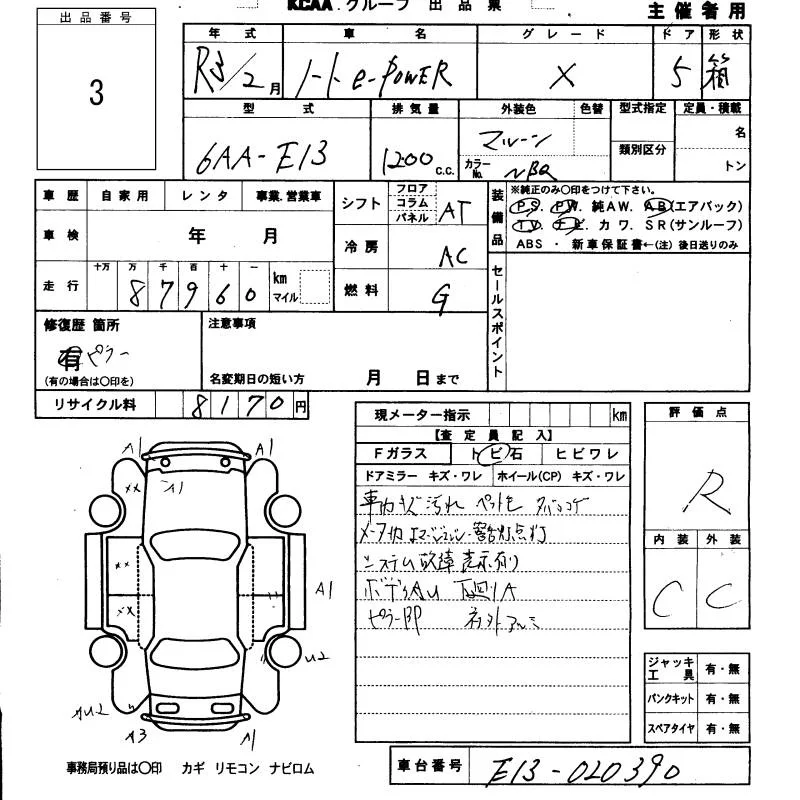 KCAA.グループ 出 品 票
主催者用
出品番号
3
年 式 車 名 グ レ ー ド ド ア 形 状
R3/2月 ノート e-POWER X 5 箱
型 式 排 気 量 外装色 色替 型式指定 定員・積載
6AA-E13 1200 c.c. マルーン
カラーNo. NBQ 類別区分 名
トン
車 歴 自 家 用 レ ン タ 事業.営業車
シフト フロア コラム パネル AT
装備品 ※純正のみ〇印をつけて下さい。
PS. PW. 純AW. AB(エアバック)
TV. ナビ. カワ. SR(サンルーフ)
ABS ・ 新車保証書←(注) 後日送りのみ
車 検 年 月
冷 房 AC
走 行 十万 万 千 百 十 一
87960 km マイル
燃 料 G
セールスポイント
修復歴 箇所
有 ピラー
(有の場合は〇印を)
注意事項
名変期日の短い方 月 日まで
リサイクル料 8170円
現メーター指示 km
【査 定 員 記 入】
Fガラス トビ石 ヒビワレ
ドアミラー キズ・ワレ ホイール(CP) キズ・ワレ
車内キズ汚れ ペット毛 タバココゲ
メーター内 エマージェンシー警告灯点灯
システム故障表示有り
ボデーAU 下廻りA
ピラーBP ネ外アルミ
評 価 点
R
内 装 外 装
C C
A1 A1
xx A1
xx
xx A1
U2
AU2
A3 A1
ジャッキ 工具 有・無
パンクキット 有・無
スペアタイヤ 有・無
事務局預り品は〇印 カギ リモコン ナビロム
車台番号 E13-020390